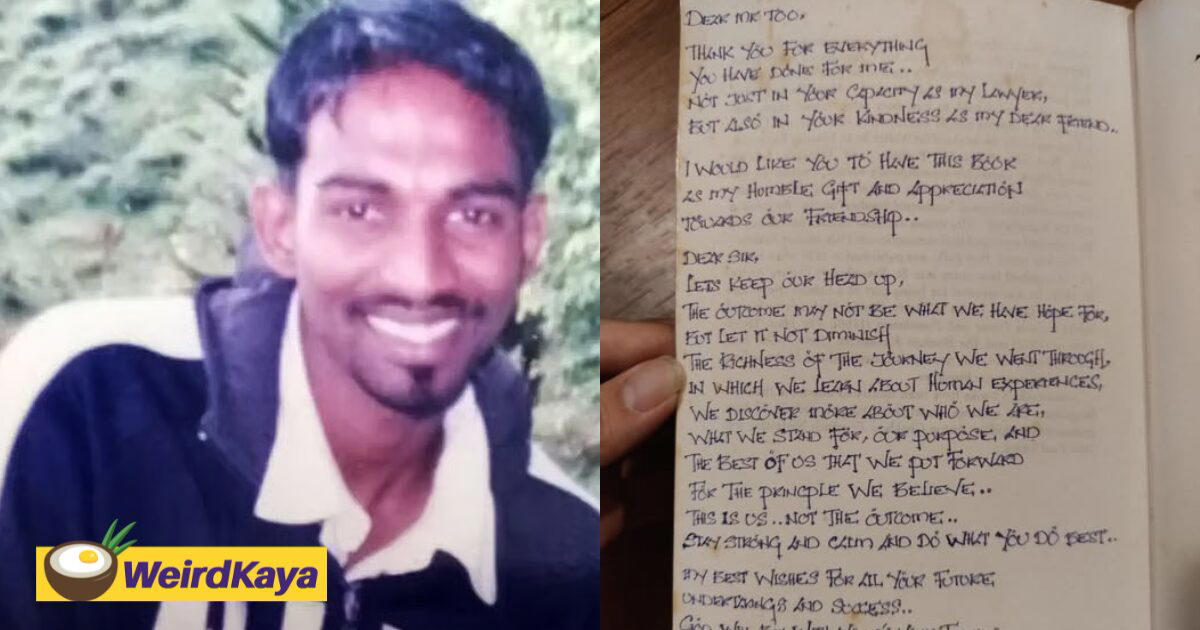 DEAR MR TOO,
THANK YOU FOR EVERYTHING
YOU HAVE DONE FOR ME..
NOT JUST IN YOUR CAPACITY AS MY LAWYER,
BUT ALSO IN YOUR KINDNESS AS MY DEAR FRIEND..
I WOULD LIKE YOU TO HAVE THIS BOOK
AS MY HUMBLE GIFT AND APPRECIATION
TOWARDS OUR FRIENDSHIP..
DEAR SIR,
LETS KEEP OUR HEAD UP,
THE OUTCOME MAY NOT BE WHAT WE HAVE HOPE FOR,
BUT LET IT NOT DIMINISH
THE RICHNESS OF THE JOURNEY WE WENT THROUGH,
IN WHICH WE LEARN ABOUT HUMAN EXPERIENCES,
WE DISCOVER MORE ABOUT WHO WE ARE,
WHAT WE STAND FOR, OUR PURPOSE, AND
THE BEST OF US THAT WE PUT FORWARD
FOR THE PRINCIPLE WE BELIEVE..
THIS IS US.. NOT THE OUTCOME..
STAY STRONG AND CALM AND DO WHAT YOU DO BEST..
MY BEST WISHES FOR ALL YOUR FUTURE
UNDERTAKINGS AND SUCCESS..
GOD WILL BE WITH
WeirdKaya